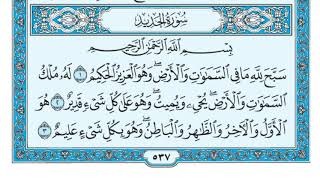 سُورَةُ الحَدِيدِ
بِسْمِ ٱللَّهِ ٱلرَّحْمَٰنِ ٱلرَّحِيمِ
سَبَّحَ لِلَّهِ مَا فِي ٱلسَّمَٰوَٰتِ وَٱلْأَرْضِۖ وَهُوَ ٱلْعَزِيزُ ٱلْحَكِيمُ ١ لَهُۥ مُلْكُ
ٱلسَّمَٰوَٰتِ وَٱلْأَرْضِۖ يُحْيِۦ وَيُمِيتُۖ وَهُوَ عَلَىٰ كُلِّ شَيْءٍ قَدِيرٌ ٢ هُوَ
ٱلْأَوَّلُ وَٱلْآخِرُ وَٱلظَّٰهِرُ وَٱلْبَاطِنُۖ وَهُوَ بِكُلِّ شَيْءٍ عَلِيمٌ ٣
٥٣٧